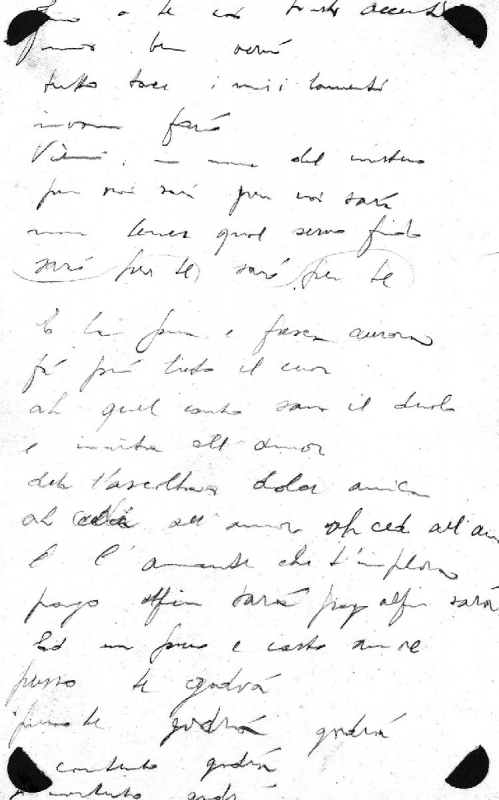 a te
ben verrà
tutto tace i miei lamenti
invan farò
Vieni, del mistero
per noi sarà per noi sarà
non temer qual servo fido
sarò per te sarò per te
e fresca aurora
fà più lieto il cuor
ah quel canto il duolo
e invita all'amor
deh l'ascolta dolce amica
ah cedi all'amor ah cedi all'am
E l'amante che t'implora
pago alfin sarà pag alfin sarà
Ed un puro e casto amore
presso te godrà
te godrà godrà
contento godrà
contento godrà